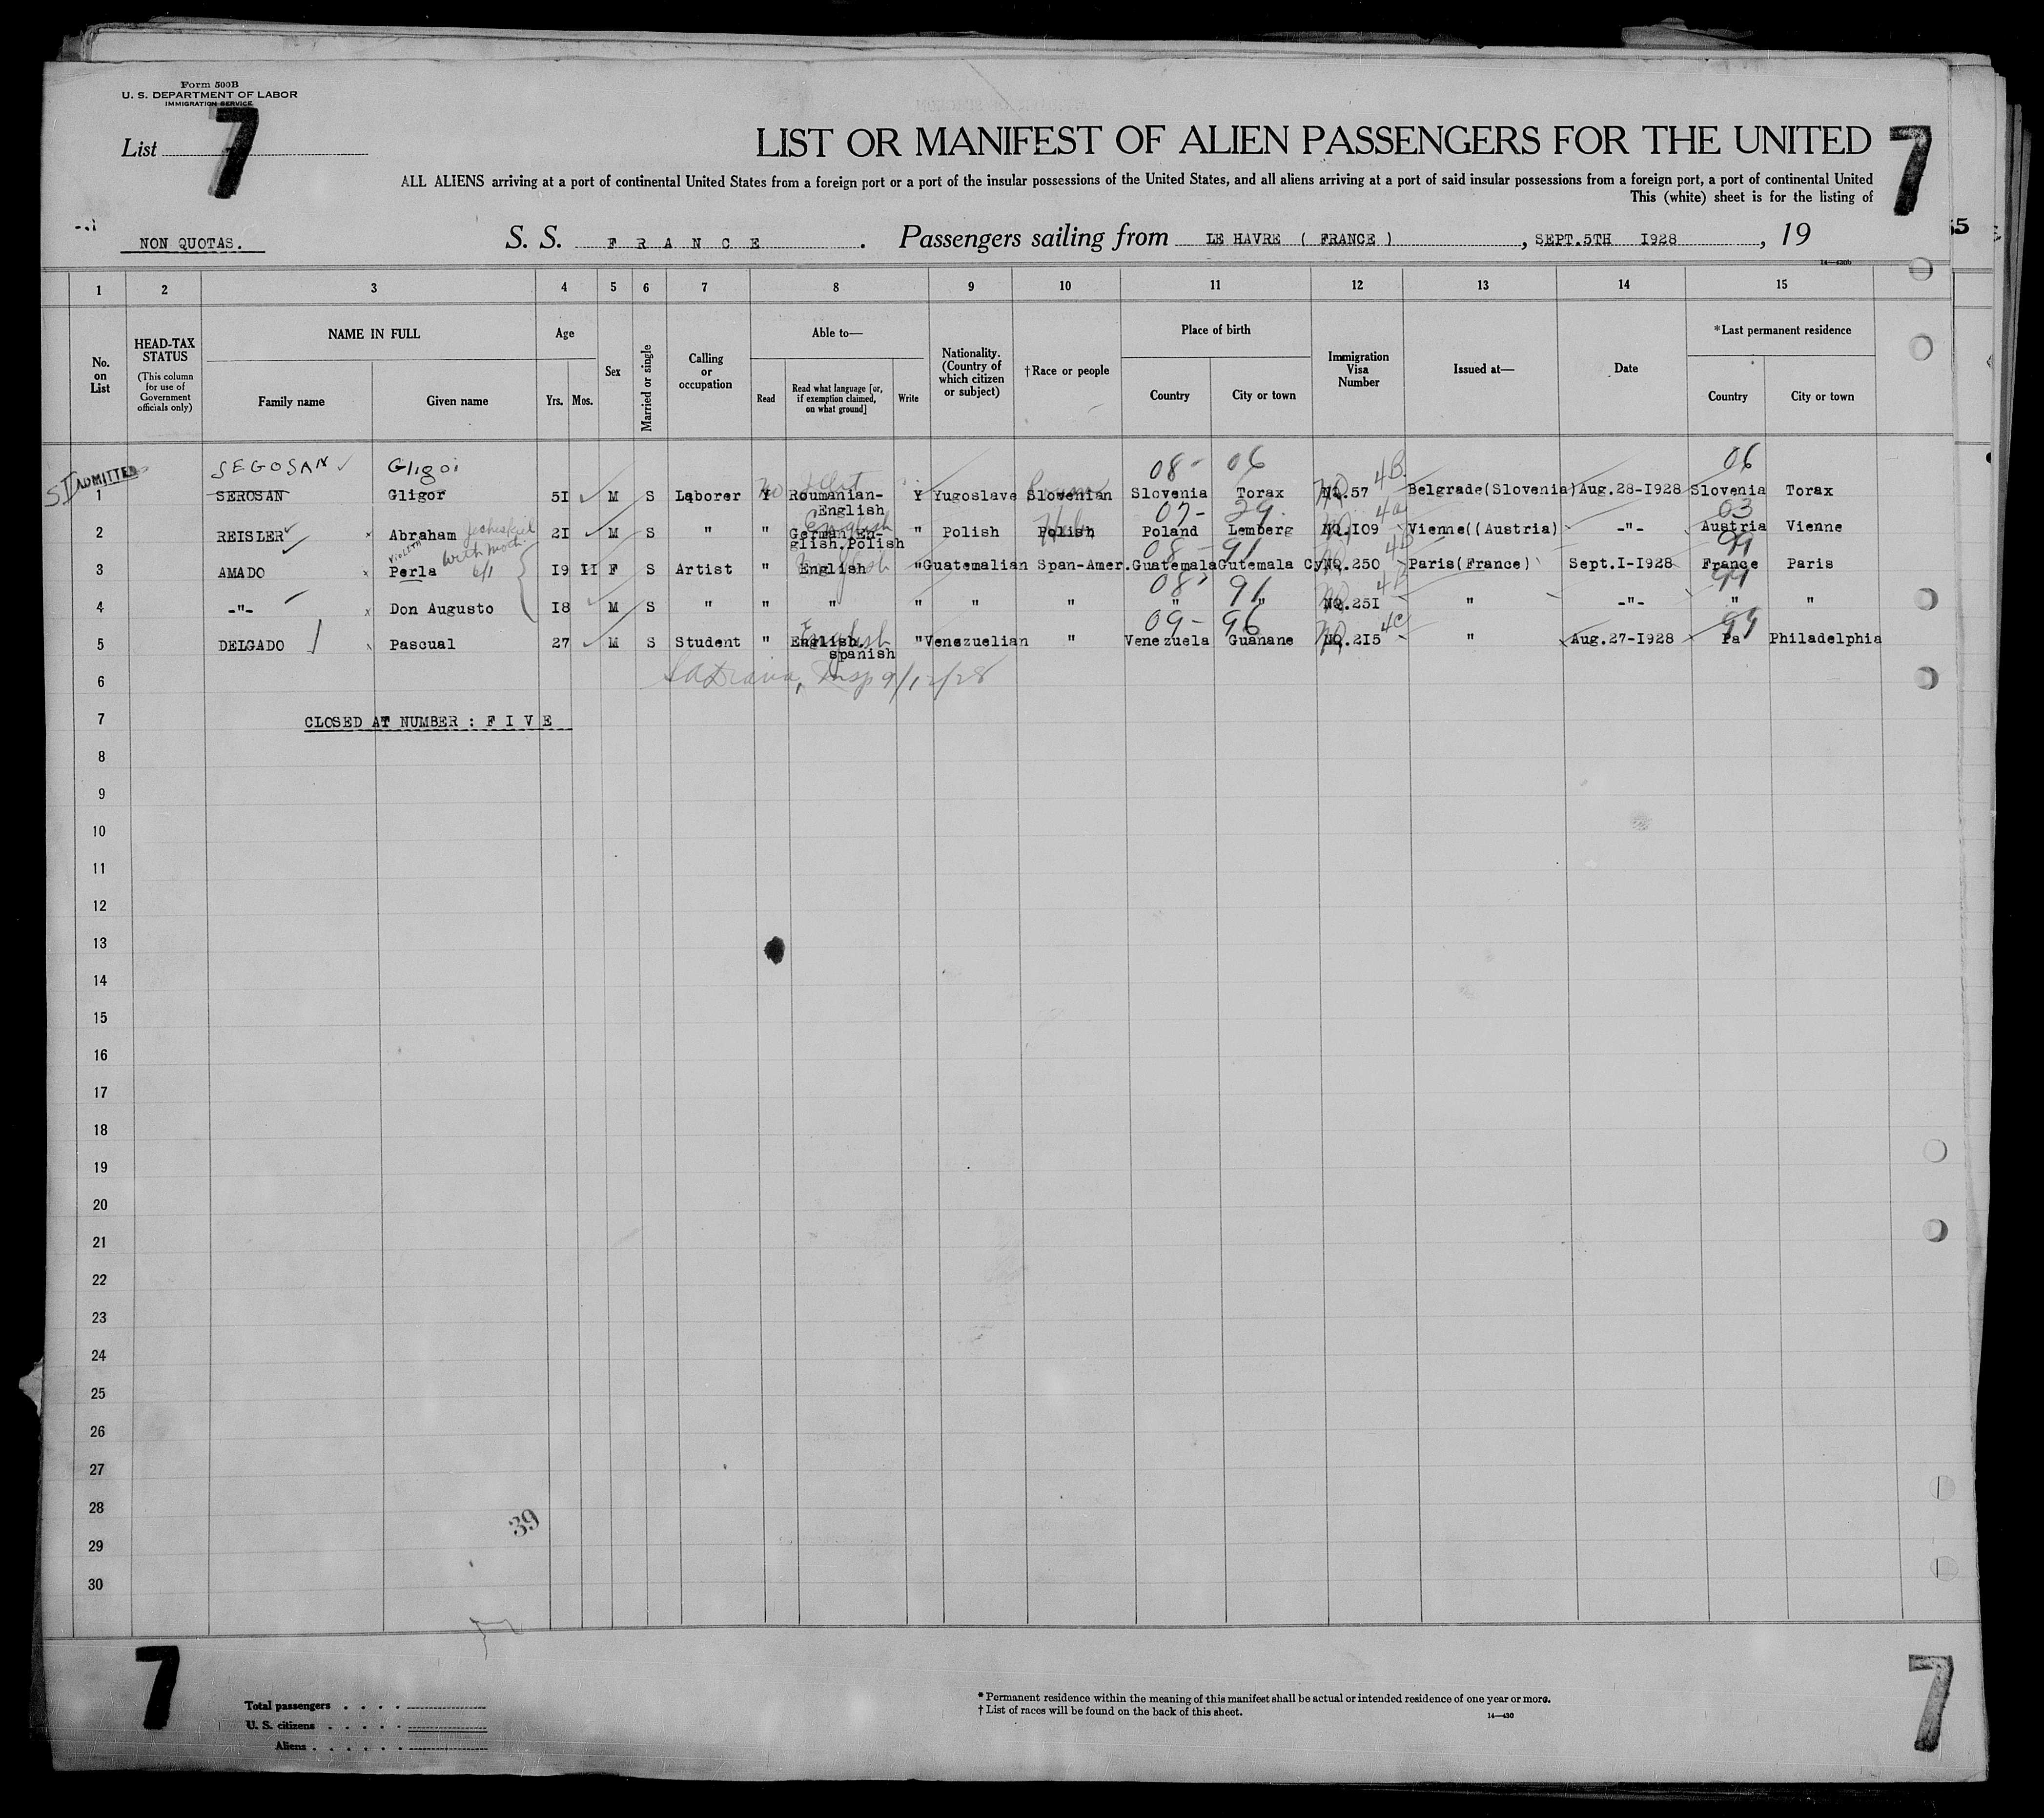 Form 500B
U. S. DEPARTMENT OF LABOR
IMMIGRATION SERVICE
List 7
7
LIST OR MANIFEST OF ALIEN PASSENGERS FOR THE UNITED
ALL ALIENS arriving at a port of continental United States from a foreign port or a port of the insular possessions of the United States, and all aliens arriving at a port of said insular possessions from a foreign port, a port of continental United
This (white) sheet is for the listing of
NON QUOTAS. S. S. F R A N C E . Passengers sailing from LE HAVRE ( FRANCE ) , SEPT.5TH I928 , 19
14—430b
1 2 3 4 5 6 7 8 9 10 11 12 13 14 15
No. on List
HEAD-TAX STATUS (This column for use of Government officials only)
NAME IN FULL Family name Given name
Age Yrs. Mos.
Sex
Married or single
Calling or occupation
Able to— Read Read what language [or, if exemption claimed, on what ground] Write
Nationality. (Country of which citizen or subject)
†Race or people
Place of birth Country City or town
Immigration Visa Number
Issued at—
Date
*Last permanent residence Country City or town
SEGOSAN Gligoi 08- 06 4B 06
ADMITTED
1 SEROSAN Gligor 5I M S Laborer Y Roumanian-English Y Yugoslave Slovenian Slovenia Torax No.57 Belgrade(Slovenia) Aug.28-I928 Slovenia Torax
07- 29 4a 03
2 REISLER Abraham 2I M S " " German,English.Polish " Polish Polish Poland Lemberg No.I09 Vienne((Austria) -"- Austria Vienne
Violeta with moth. 6/1 08- 91 99
3 AMADO Perla I9 II F S Artist " English " Guatemalian Span-Amer. Guatemala Gutemala Cy No.250 Paris(France) Sept.I-I928 France Paris
08- 91 4B 99
4 -"- Don Augusto I8 M S " " " " " " " " No.25I " -"- " "
09- 96 4c 99
5 DELGADO Pascual 27 M S Student " English. spanish " Venezuelian " Venezuela Guanane No.2I5 " Aug.27-I928 Pa Philadelphia
6 Insp 9/12/28
7 CLOSED AT NUMBER : F I V E
8
9
10
11
12
13
14
15
16
17
18
19
20
21
22
23
24
25
26
27
28
39
29
30
7
7
Total passengers
U. S. citizens
Aliens
* Permanent residence within the meaning of this manifest shall be actual or intended residence of one year or more.
† List of races will be found on the back of this sheet.
14—430